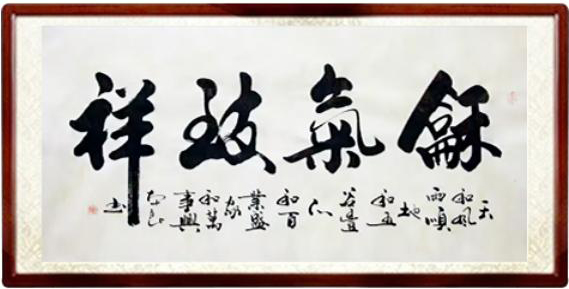 龢氣致祥
天
和風
雨順
地
和五
谷豐
心
和百
業盛
家
和萬
事興